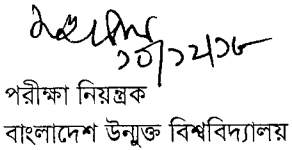 ১০/১২/১৮
পরীক্ষা নিয়ন্ত্রক
বাংলাদেশ উন্মুক্ত বিশ্ববিদ্যালয়